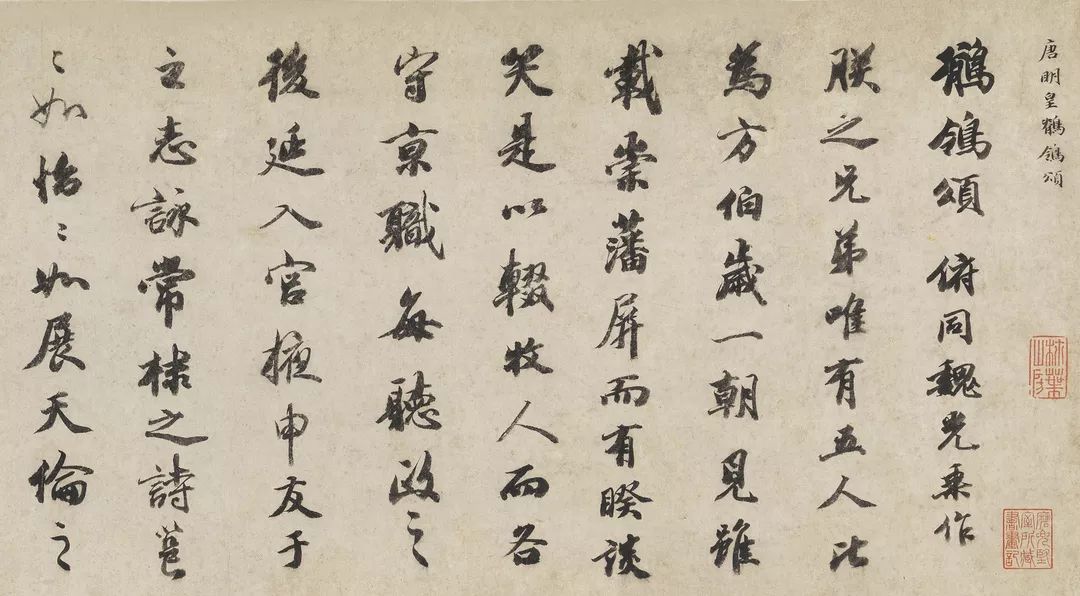 唐明皇鶺鴒頌
鶺鴒頌 俯同魏光乘作
朕之兄弟唯有五人比
為方伯歲一朝見雖
載崇藩屏而有睽談
笑是以輟牧人而各
守京職每聽政之
後延入宮掖申友于
之志詠常棣之詩邕
〻如怡〻如展天倫之